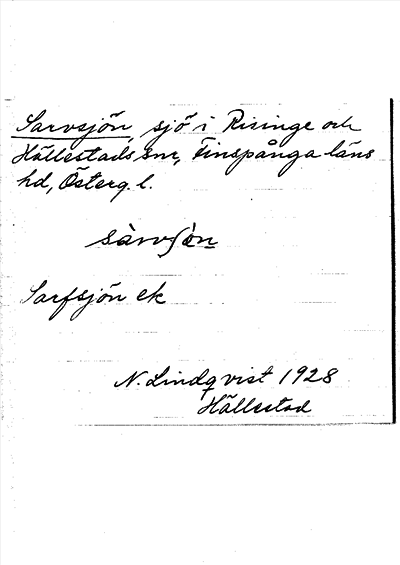 Sarvsjön, sjö i Risinge och
Hällestads snr, Finspånga läns
hd, Österg. l.
sàrvſòn
Sarfsjön ek
N. Lindqvist 1928
Hällestad